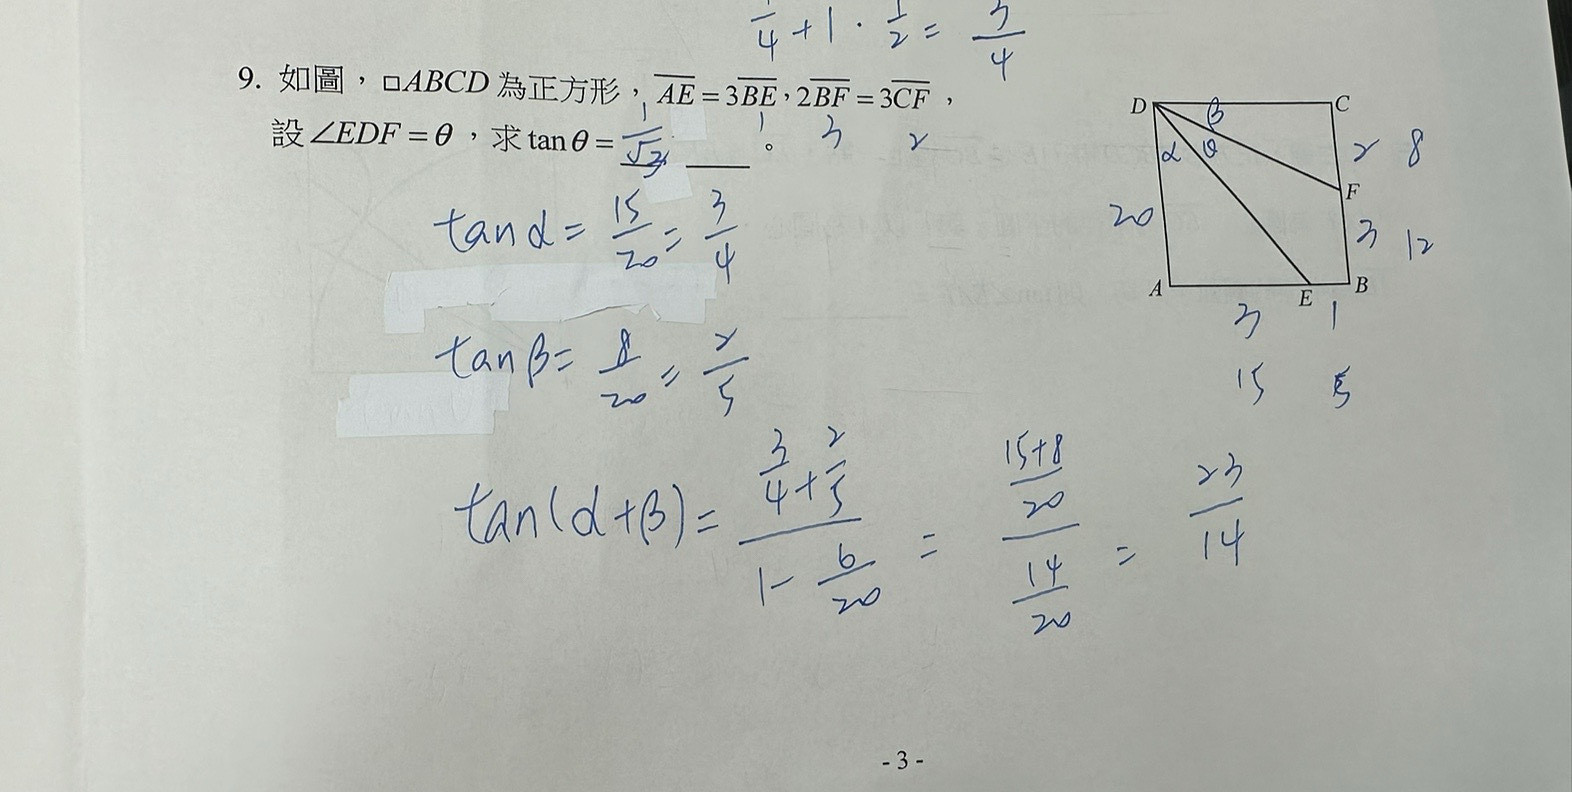 1/4 + 1 · 1/2 = 3/4
9. 如圖，□ABCD 為正方形，AE = 3BE，2BF = 3CF，
1 3 2
設 ∠EDF = θ ，求 tan θ = 1/√3 。
D β C
α θ 2 8
F
20 3 12
A E B
3 1
15 5
tan α = 15/20 = 3/4
tan β = 8/20 = 2/5
tan(α+β) = (3/4 + 2/5)/(1 - 6/20) = ((15+8)/20)/(14/20) = 23/14
- 3 -